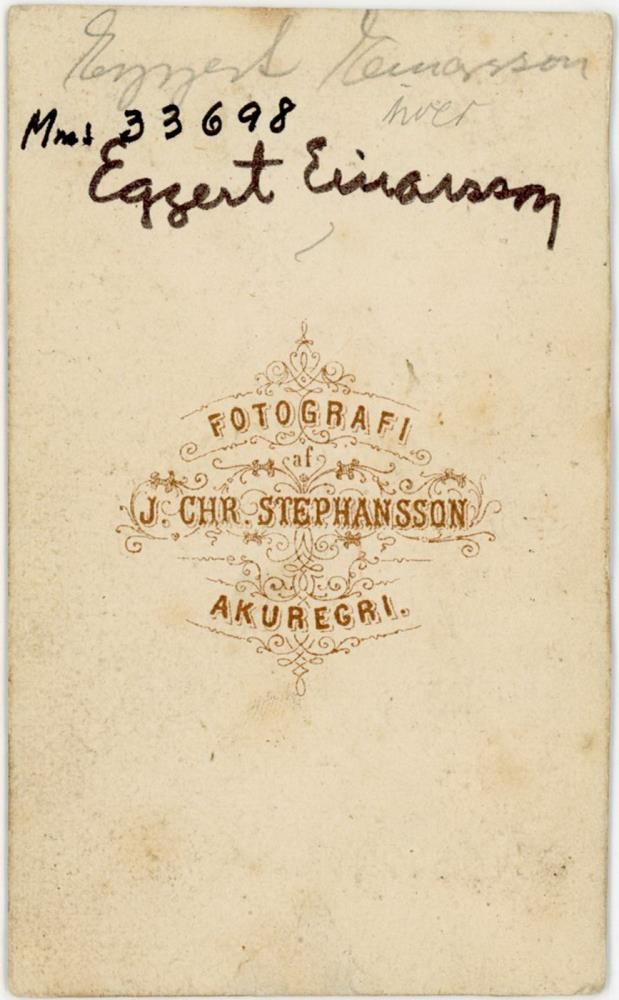 Eggert Einarsson
hver
Mms 33698
Eggert Einarsson
FOTOGRAFI
af
J. CHR. STEPHANSSON
AKUREGRI.